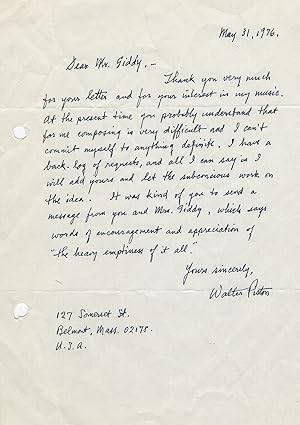 May 31, 1976.
Dear Mr. Giddy, —
Thank you very much
for your letter and for your interest in my music.
At the present time you probably understand that
for me composing is very difficult and I can't
commit myself to anything definite. I have a
back-log of requests, and all I can say is I
will add yours and let the subconscious work on
the idea. It was kind of you to send a
message from you and Mrs. Giddy, which says
words of encouragement and appreciation of
"the heavy emptiness of it all."
Yours sincerely,
Walter Piston
127 Somerset St.
Belmont, Mass. 02178.
U.S.A.